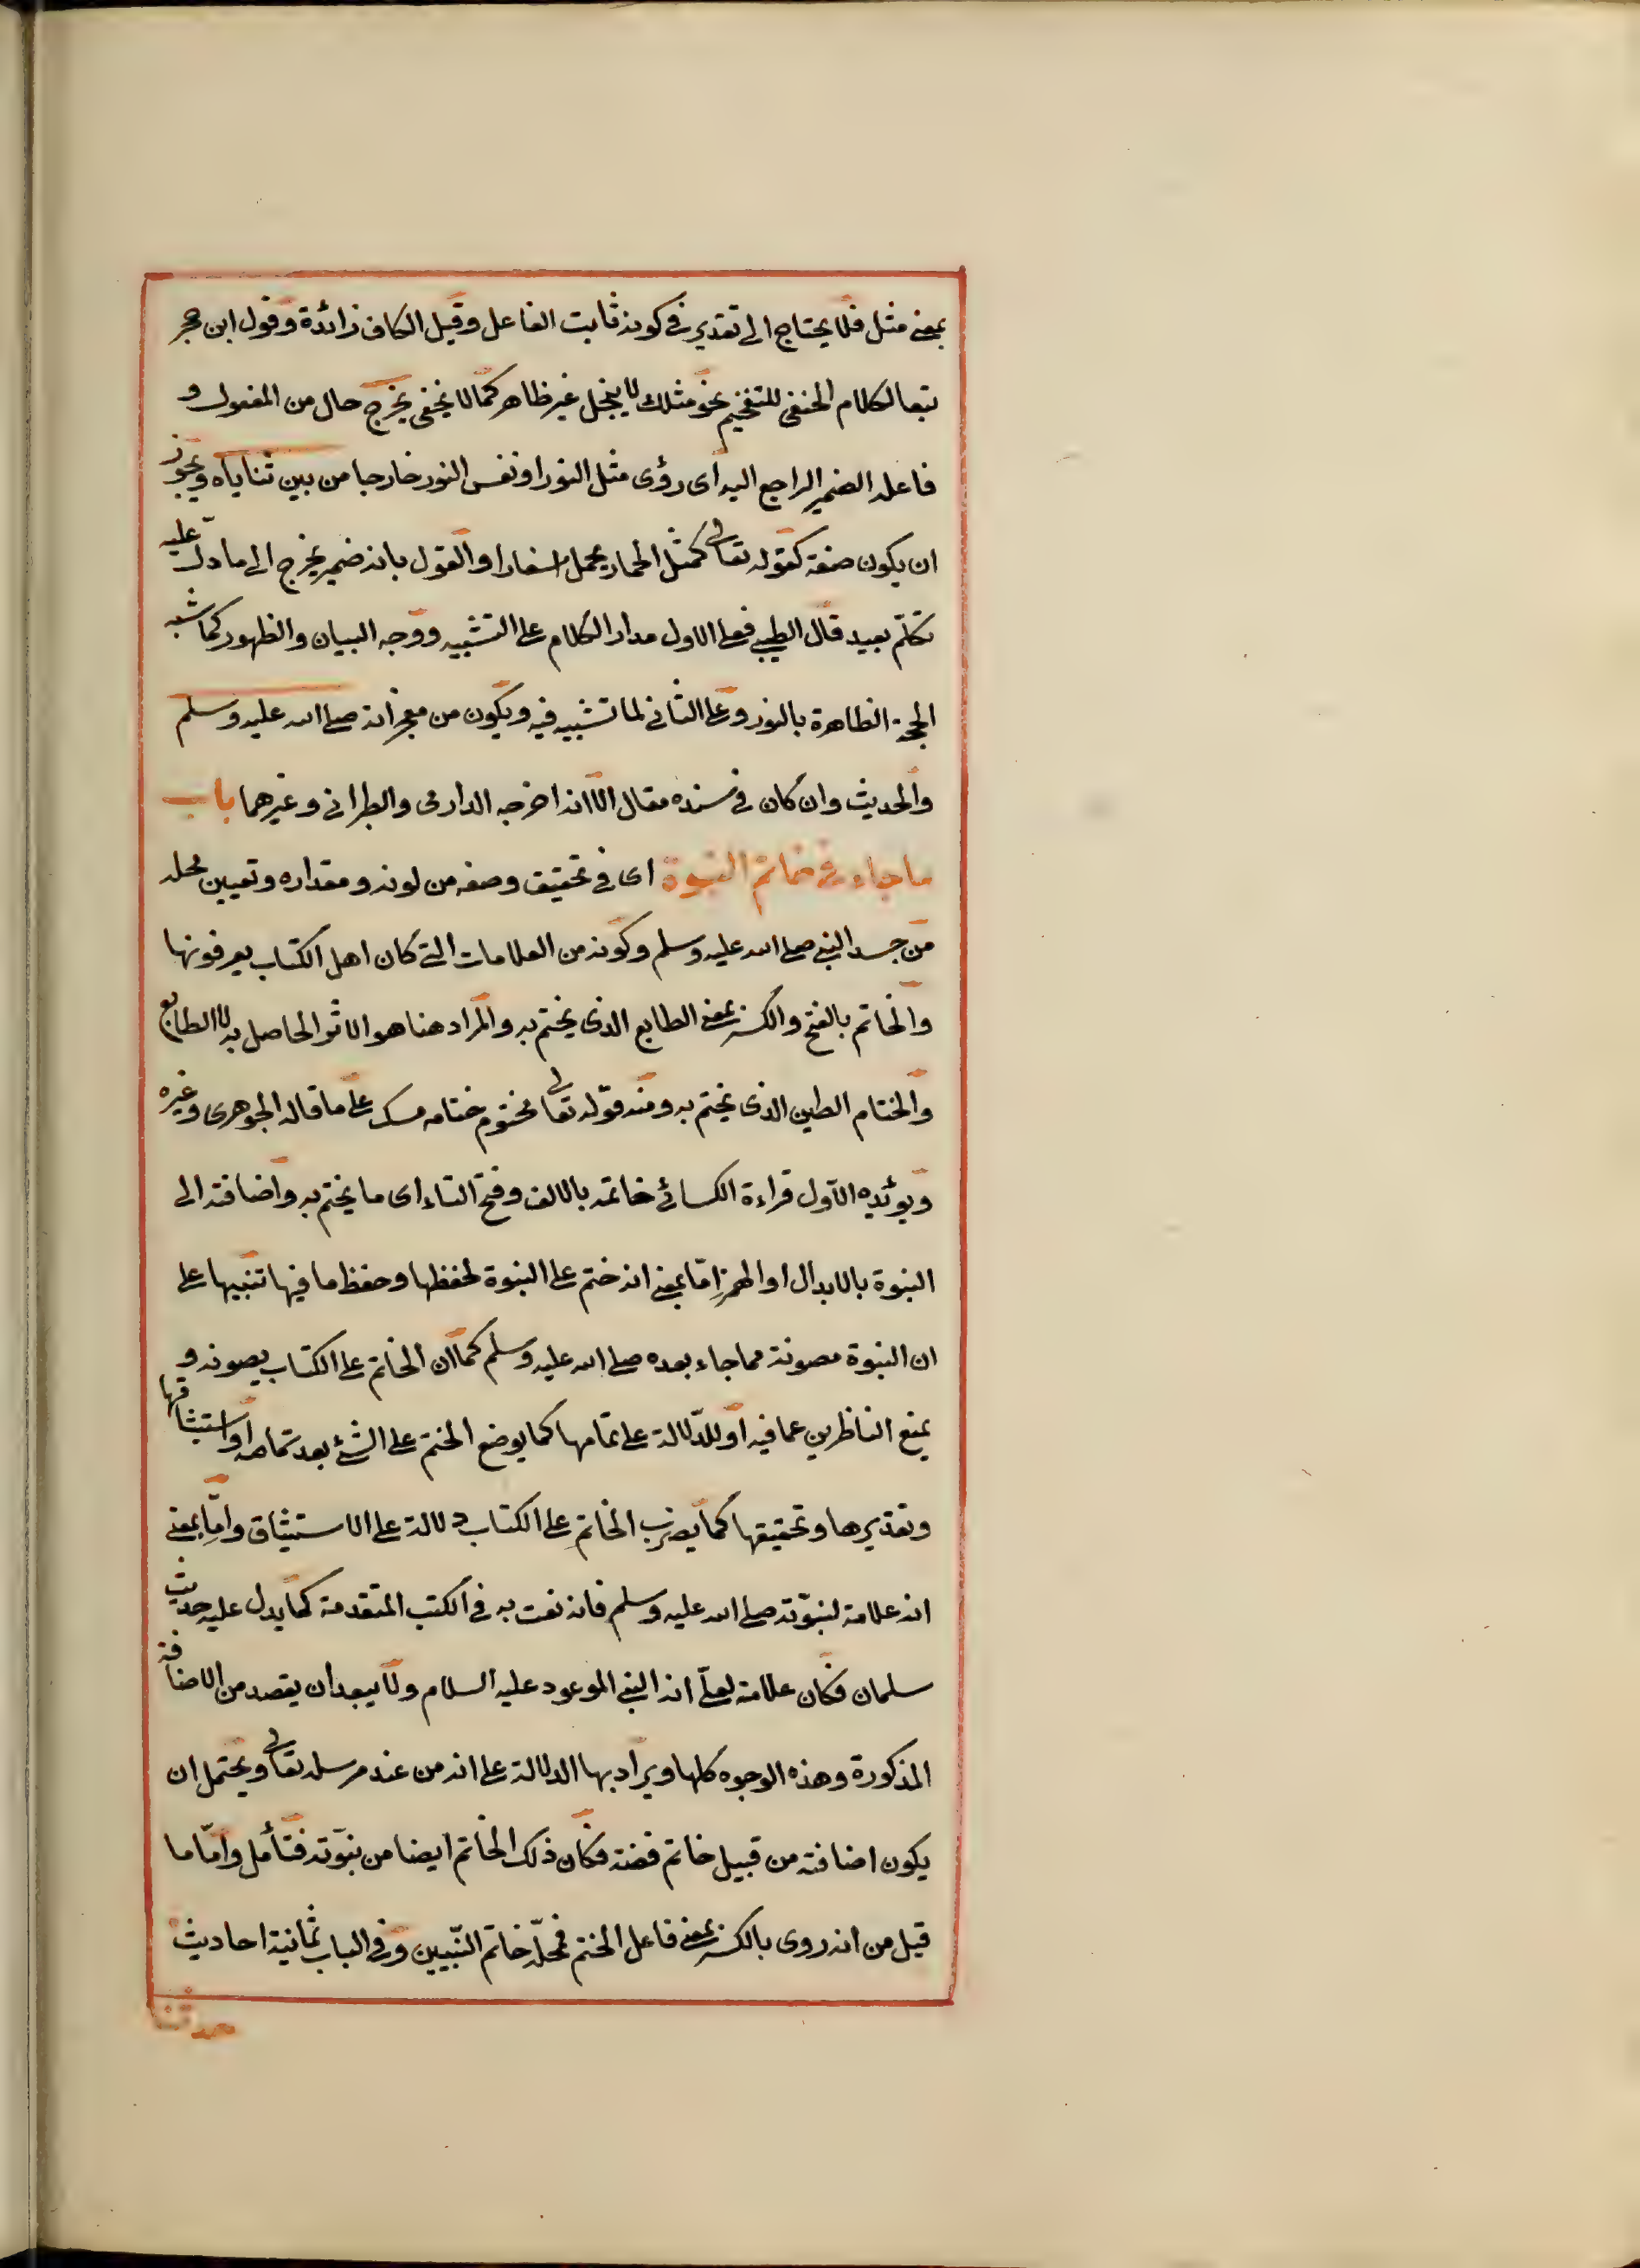 بمعنى مثل فلا يحتاج الى تقدير في كونه نائب الفاعل وقيل الكاف زائدة وقول ابن حجر
تبعا لكلام الحنفي للتفخيم نحو مثلك لا يبخل غير ظاهر كما لا يخفى يخرج حال من المفعول و
فاعله الضمير الراجع اليه اى رؤى مثل النور او نفس النور خارجا من بين ثناياه ويجوز
ان يكون صفة كقوله تعالى كمثل الحمار يحمل اسفارا والقول بانه ضمير يخرج الى ما دل عليه
تكلم بعيد قال الطيبي فعلى الاول مدار الكلام على التشبيه ووجه البيان والظهور كما شبه
الحجة الظاهرة بالنور وعلى الثاني لما تشبيه فيه ويكون من معجزاته صلى الله عليه وسلم
والحديث وان كان في سنده مقال الا انه اخرجه الدارمى والطبرانى وغيرهما باب
ما جاء في خاتم النبوة اى في تحقيق وصفه من لونه ومقداره وتعيين محله
من جسد النبي صلى الله عليه وسلم وكونه من العلامات التي كان اهل الكتاب يعرفونها
والخاتم بالفتح والكسر بمعنى الطابع الذى يختم به والمراد هنا هو الاثر الحاصل به لا الطابع
والختام الطين الذى يختم به ومنه قوله تعالى مختوم ختامه مسك على ما قاله الجوهرى وغيره
ويؤيده الاول قراءة الكسائى خاتمه بالالف وفتح التاء اى ما يختم به واضافته الى
النبوة بالابدال او الهمز اما بمعنى انه ختم على النبوة لحفظها وحفظ ما فيها تنبيها على
ان النبوة مصونة مما جاء بعده صلى الله عليه وسلم كما ان الخاتم على الكتاب يصونه و
يمنع الناظرين عما فيه او للدلالة على تمامها كما يوضع الختم على الشئ بعد تمامه او استيثاقها
وتقديرها وتحقيقها كما يضرب الخاتم على الكتاب دلالة على الاستيثاق واما بمعنى
انه علامة لنبوته صلى الله عليه وسلم فانه نعت به في الكتب المتقدمة كما يدل عليه حديث
سلمان فكان علامة لعلم انه النبي الموعود عليه السلام ولا يبعد ان يقصد من الاضافة
المذكورة وهذه الوجوه كلها ويراد بها الدلالة على انه من عند مرسله تعالى ويحتمل ان
يكون اضافته من قبيل خاتم فضة فكان ذلك الخاتم ايضا من نبوته فتأمل واما ما
قيل من انه روى بالكسر بمعنى فاعل الختم فمحله خاتم النبيين وفي الباب ثمانية احاديث
حدثنا